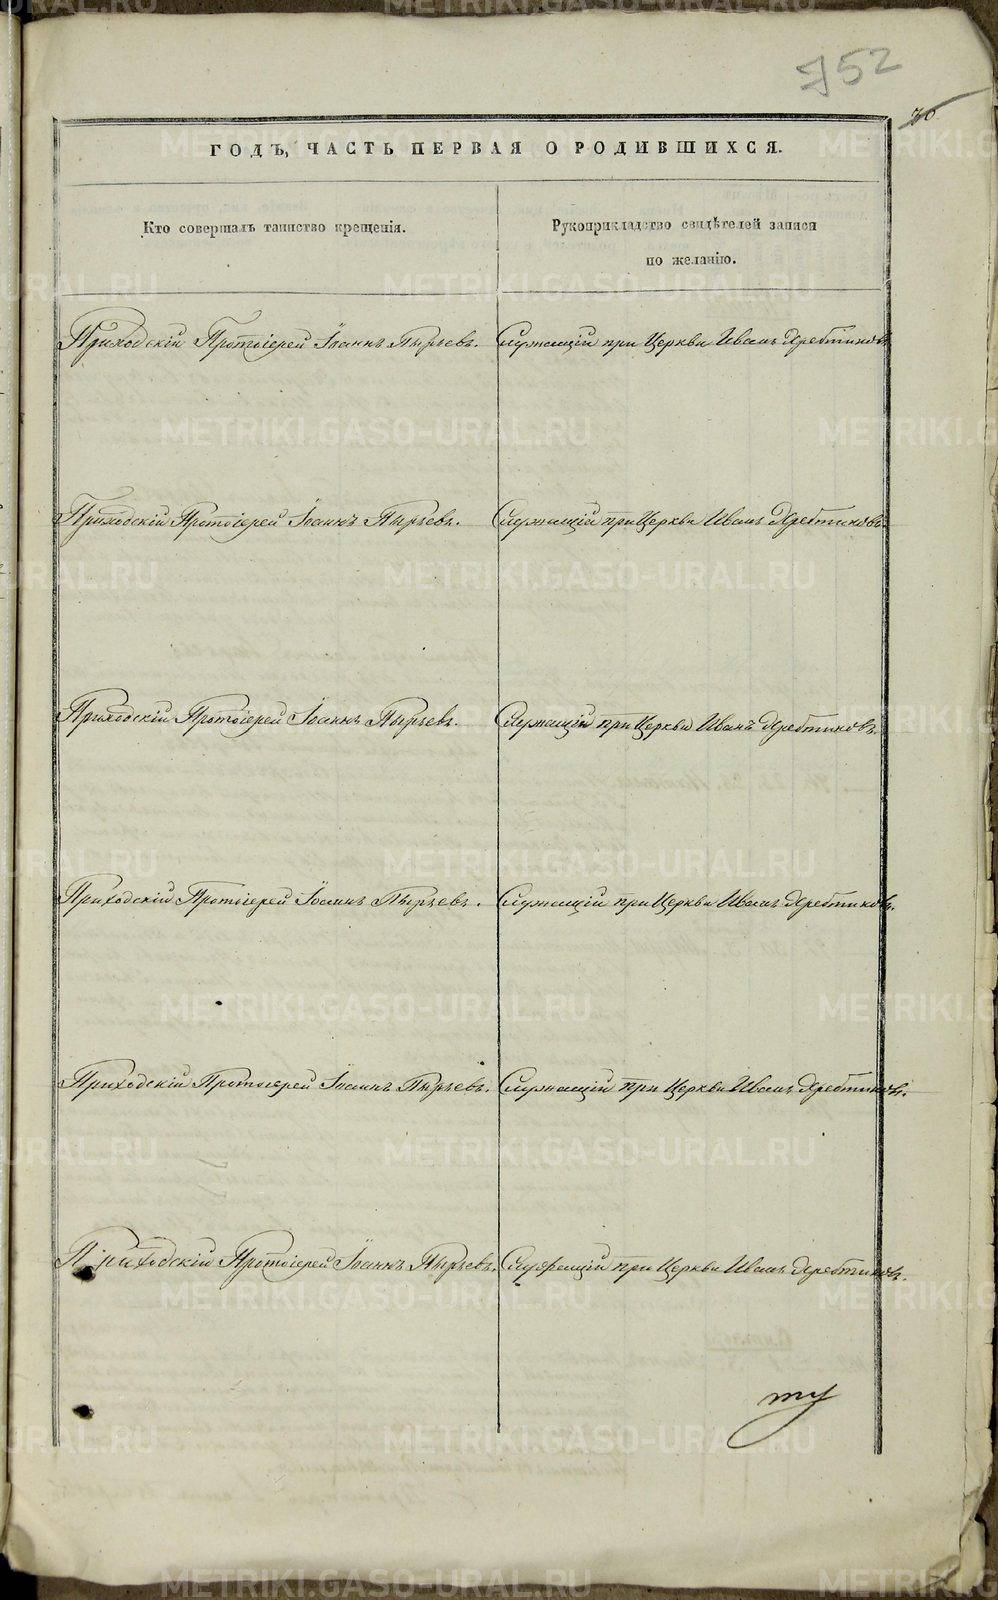 752
76
ГОДЪ, ЧАСТЬ ПЕРВАЯ О РОДИВШИХСЯ.
Кто совершалъ таинство крещенія.
Рукоприкладство свидѣтелей записи
по желанію.
Приходскій Протоіерей Іоаннъ Пырьевъ. Служащій при Церкви Иванъ Хребтиковъ
Приходскій Протоіерей Іоаннъ Пырьевъ. Служащій при Церкви Иванъ Хребтиковъ.
Приходскій Протоіерей Іоаннъ Пырьевъ. Служащій при Церкви Иванъ Хребтиковъ.
Приходскій Протоіерей Іоаннъ Пырьевъ. Служащій при Церкви Иванъ Хребтиковъ.
Приходскій Протоіерей Іоаннъ Пырьевъ. Служащій при Церкви Иванъ Хребтиковъ.
Приходскій Протоіерей Іоаннъ Пырьевъ. Служащій при Церкви Иванъ Хребтиковъ.
ту
METRIKI.GASO-URAL.RU